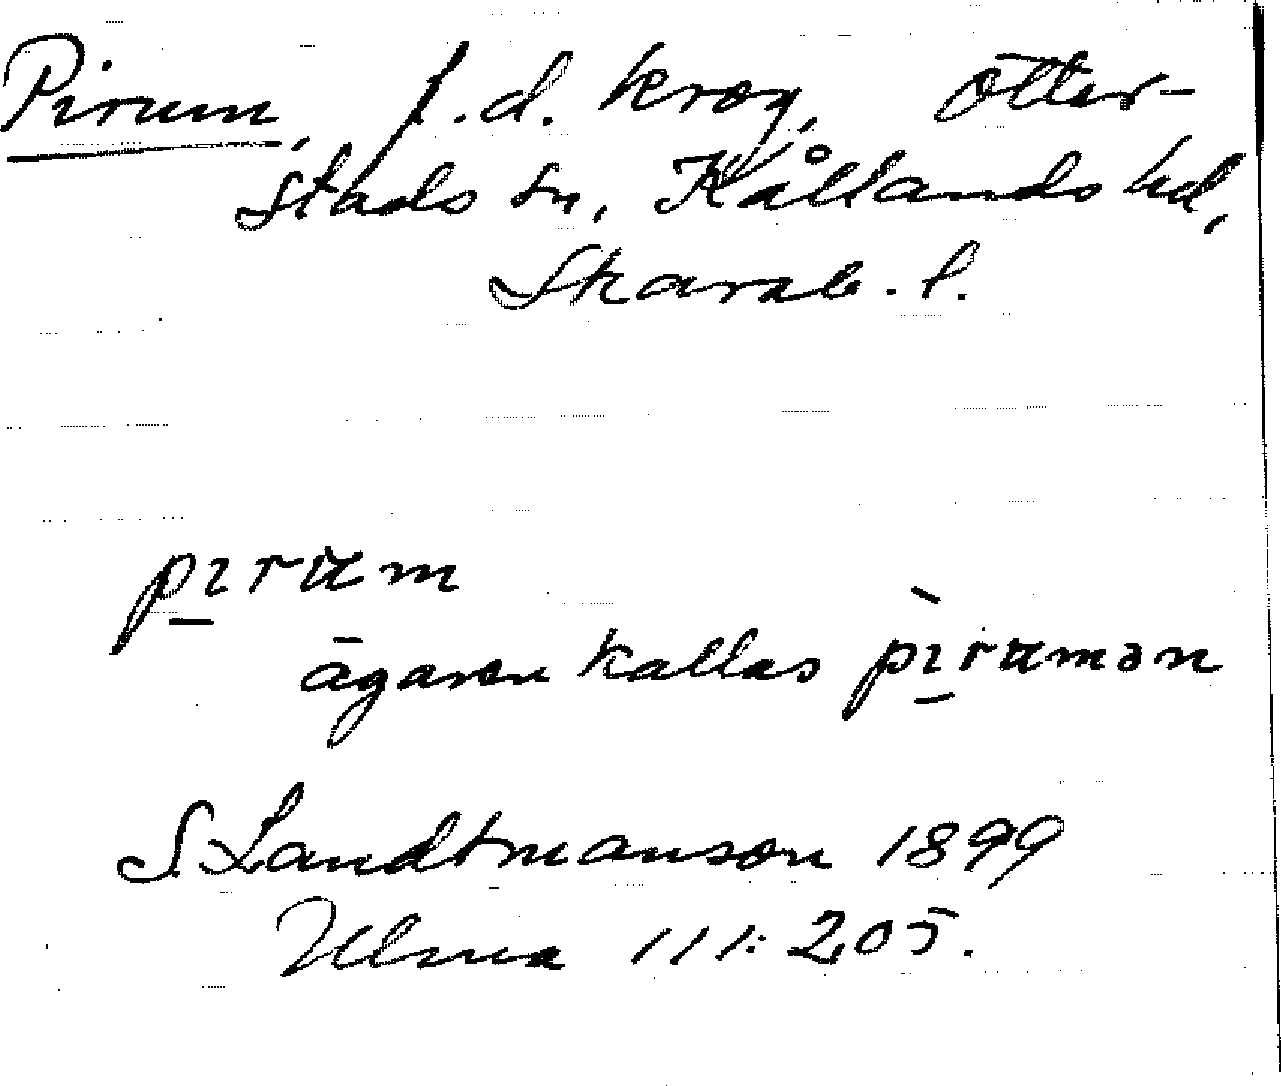 Pirum, f.d. krog, Otter-
stads sn, Kållands hd,
Skarab. l.
pırum
ägaren kallas pı̀rumən
S. Landtmanson 1899
Ulma 111:205.